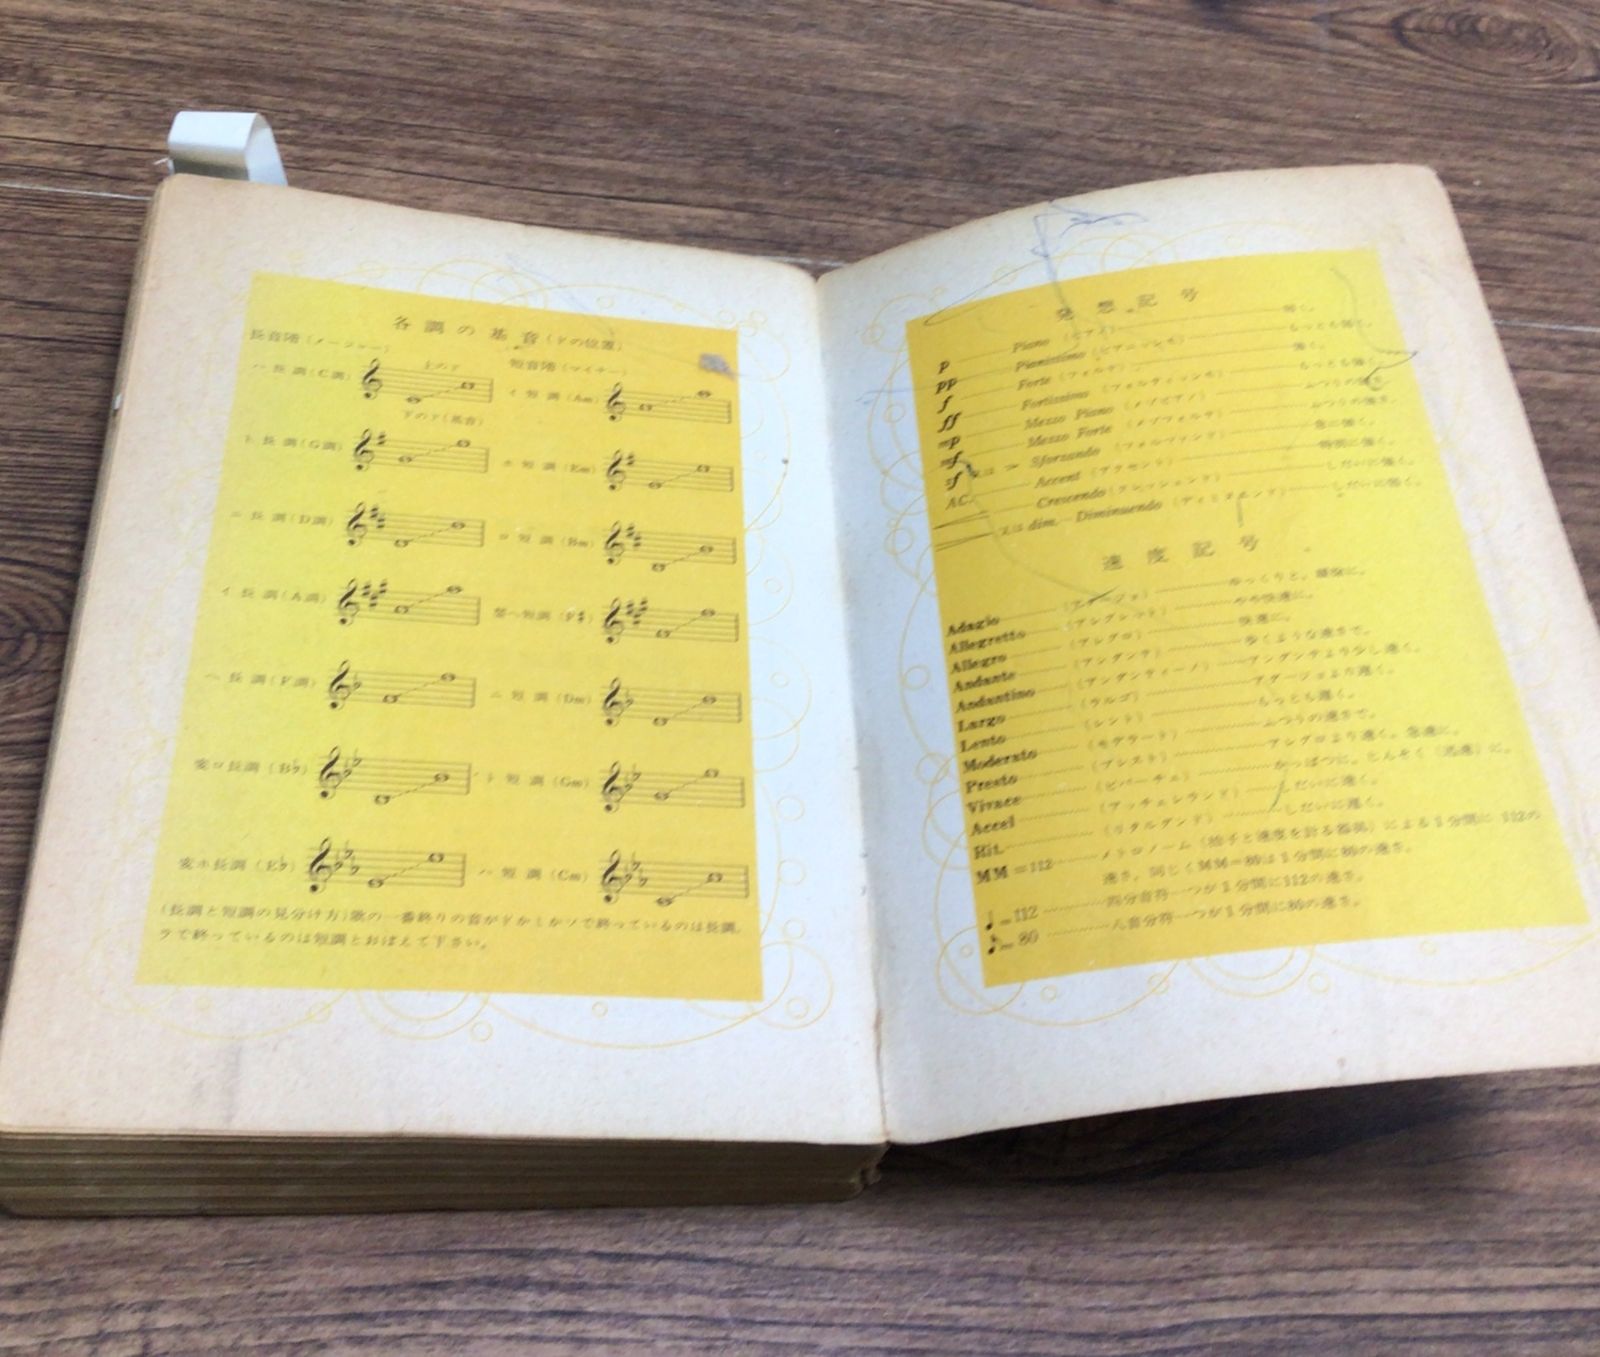 各調の基音(ドの位置)
長音階(メージャー)
短音階(マイナー)
ハ長調(C調)
上のド
下のド(基音)
イ短調(Am)
ト長調(G調)
ホ短調(Em)
ニ長調(D調)
ロ短調(Bm)
イ長調(A調)
嬰ヘ短調(F♯)
ヘ長調(F調)
ニ短調(Dm)
変ロ長調(B♭)
ト短調(Gm)
変ホ長調(E♭)
ハ短調(Cm)
(長調と短調の見分け方)歌の一番終りの音がドかミかソで終っているのは長調。
ラで終っているのは短調とおぼえて下さい。
発想記号
p Piano (ピアノ) 弱く。
pp Pianissimo (ピアニッシモ) もっとも弱く。
f Forte (フォルテ) 強く。
ff Fortissimo (フォルティッシモ) もっとも強く。
mp Mezzo Piano (メゾピアノ) ふつうの弱さ
mf Mezzo Forte (メゾフォルテ) ふつうの強さ。
sf 又は > Sforzando (フォルツァンド) 急に強く。
AC. Accent (アクセント) 特別に強く。
Crescendo (クレッシェンド) しだいに強く。
又は dim. Diminuendo (ディミヌエンド) しだいに弱く。
速度記号
Adagio (アダージョ) ゆっくりと。
Allegretto (アレグレット) やや快速に。
Allegro (アレグロ) 快速に。
Andante (アンダンテ) 歩くような速さで。
Andantino (アンダンティーノ) アンダンテより少し速く。
Largo (ラルゴ) アダージョより遅く。
Lento (レント) もっとも遅く。
Moderato (モデラート) ふつうの速さで。
Presto (プレスト) アレグロより速く。急速に。
Vivace (ビバーチェ) かっぱつに。
Accel (アッチェレランド) しだいに速く。
Rit. (リタルダンド) しだいに遅く。
MM=112 メトロノーム(拍子と速度を計る器械)による1分間に112の
速さ。同じくMM=80は1分間に80の速さ。
♩=112 四分音符一つが1分間に112の速さ。
♪=80 八音分符一つが1分間に80の速さ。